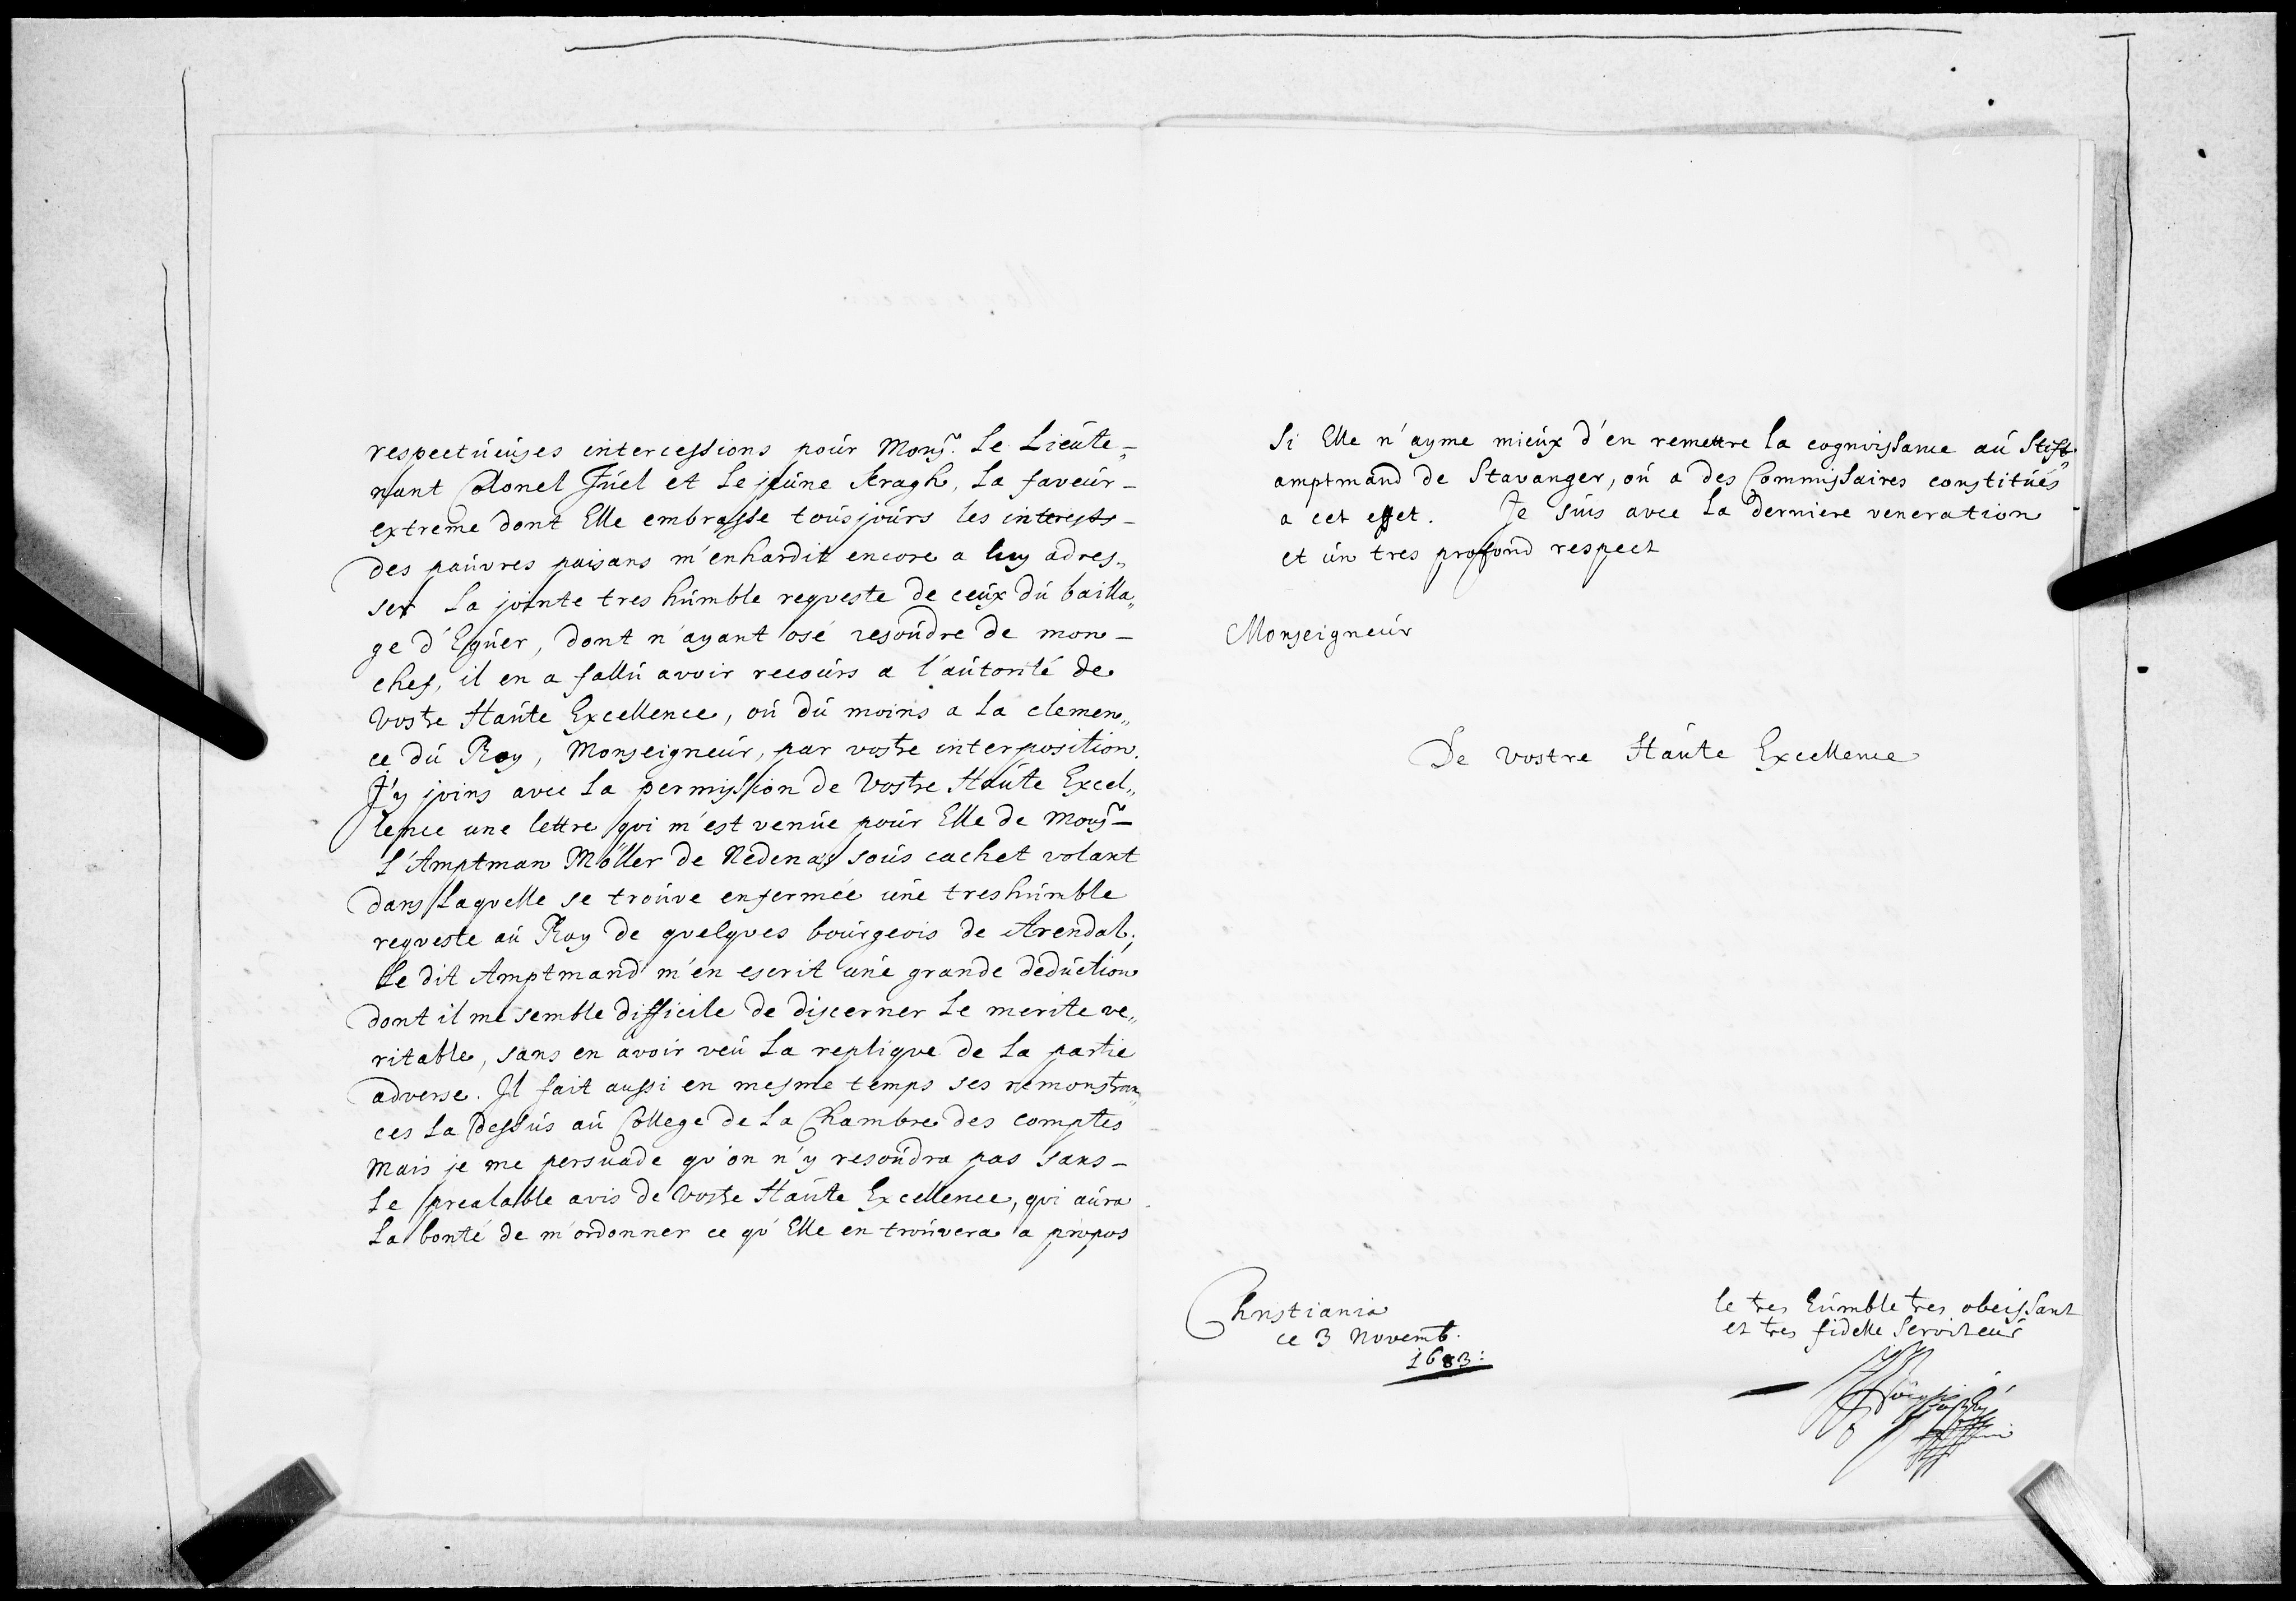 respectueuses intercessions pour Monsr. le Lieute-
nant Colonel Juel et le jeune Kragh, la faveur-
extreme dont Elle embrasse tousjours les interests-
des pauvres paisans m'enhardit encore a luy adres„
ser la jointe tres humble reqveste de ceux du bailla„
ge d'Eguer, dont n'ayant osé resoudre de mon-
chef, il en a fallu avoir recours a l'autorité de
Vostre Haute Excellence, ou du moins a la clemen„
ce du Roy, Monseigneur, par vostre interposition.
J'y joins avec la permission de Vostre Haute Excel„
lence une lettre qvi m'est venue pour Elle de Monsr-
l'Amptman Möller de Nedenas sous cachet volant
dans laqvelle se trouve enfermée une treshumble
reqveste au Roy de qvelqves bourgeois de Arendal;
le dit Amptmand m'en escrit une grande deduction
dont il me semble difficile de discerner le merite ve„
ritable, sans en avoir veu la repliqve de la partie
adverse. Il fait aussi en mesme temps ses remonstran„
ces la dessus au College de la Chambre des comptes
Mais je me persuade qv'on n'y resoudra pas sans-
le prealable avis de Vostre Haute Excellence, qvi aura
la bonté de m'ordonner ce qv'Elle en trouvera a propos
si Elle n'ayme mieux d'en remettre la cognoissance au Stift„
amptmand de Stavanger, ou a des Commissaires constitués
a cet effet. Je suis avec la derniere veneration
et un tres profond respect
Monseigneur
De vostre Haute Excellence
Christiania
ce 3 Novemb.
1683:
le tres humble tres obeissant
et tres fidelle serviteur